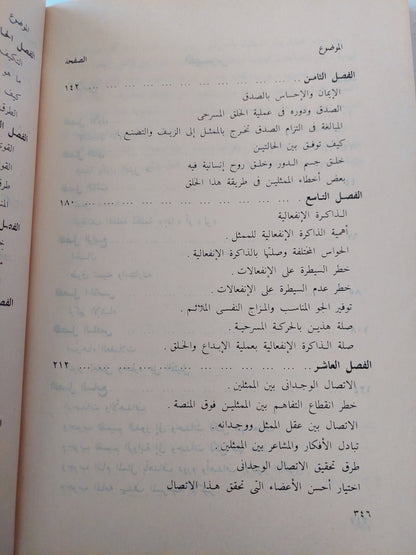 الموضوع
الصفحة
الفصل الثامن ... ١٤٢
الإيمان والإحساس بالصدق
الصدق ودوره فى عملية الخلق المسرحى
المبالغة فى التزام الصدق تخرج بالممثل إلى الزيف والتصنع .
كيف توفق بين الحالتين
خلق جسم الدور وخلق روح إنسانية فيه
بعض أخطاء الممثلين فى طريقة هذا الخلق
الفصل التاسع ... ١٨٠
الذاكرة الإنفعالية
أهمية الذاكرة الإنفعالية للممثل .
الحواس المختلفة وصلتها بالذاكرة الإنفعالية .
خطر السيطرة على الإنفعالات .
خطر عدم السيطرة على الإنفعالات .
توفير الجو المناسب والمزاج النفسى الملائم .
صلة هذين بالحركة المسرحية .
صلة الذاكرة الإنفعالية بعملية الإبداع والخلق .
الفصل العاشر ... ٢١٢
الاتصال الوجدانى بين الممثلين .
خطر انقطاع التفاهم بين الممثلين فوق المنصة .
الاتصال بين عقل الممثل ووجدانه .
تبادل الأفكار والمشاعر بين الممثلين .
طرق تحقيق الاتصال الوجدانى
اختيار أحسن الأعضاء التى تحقق هذا الاتصال
٣٤٦